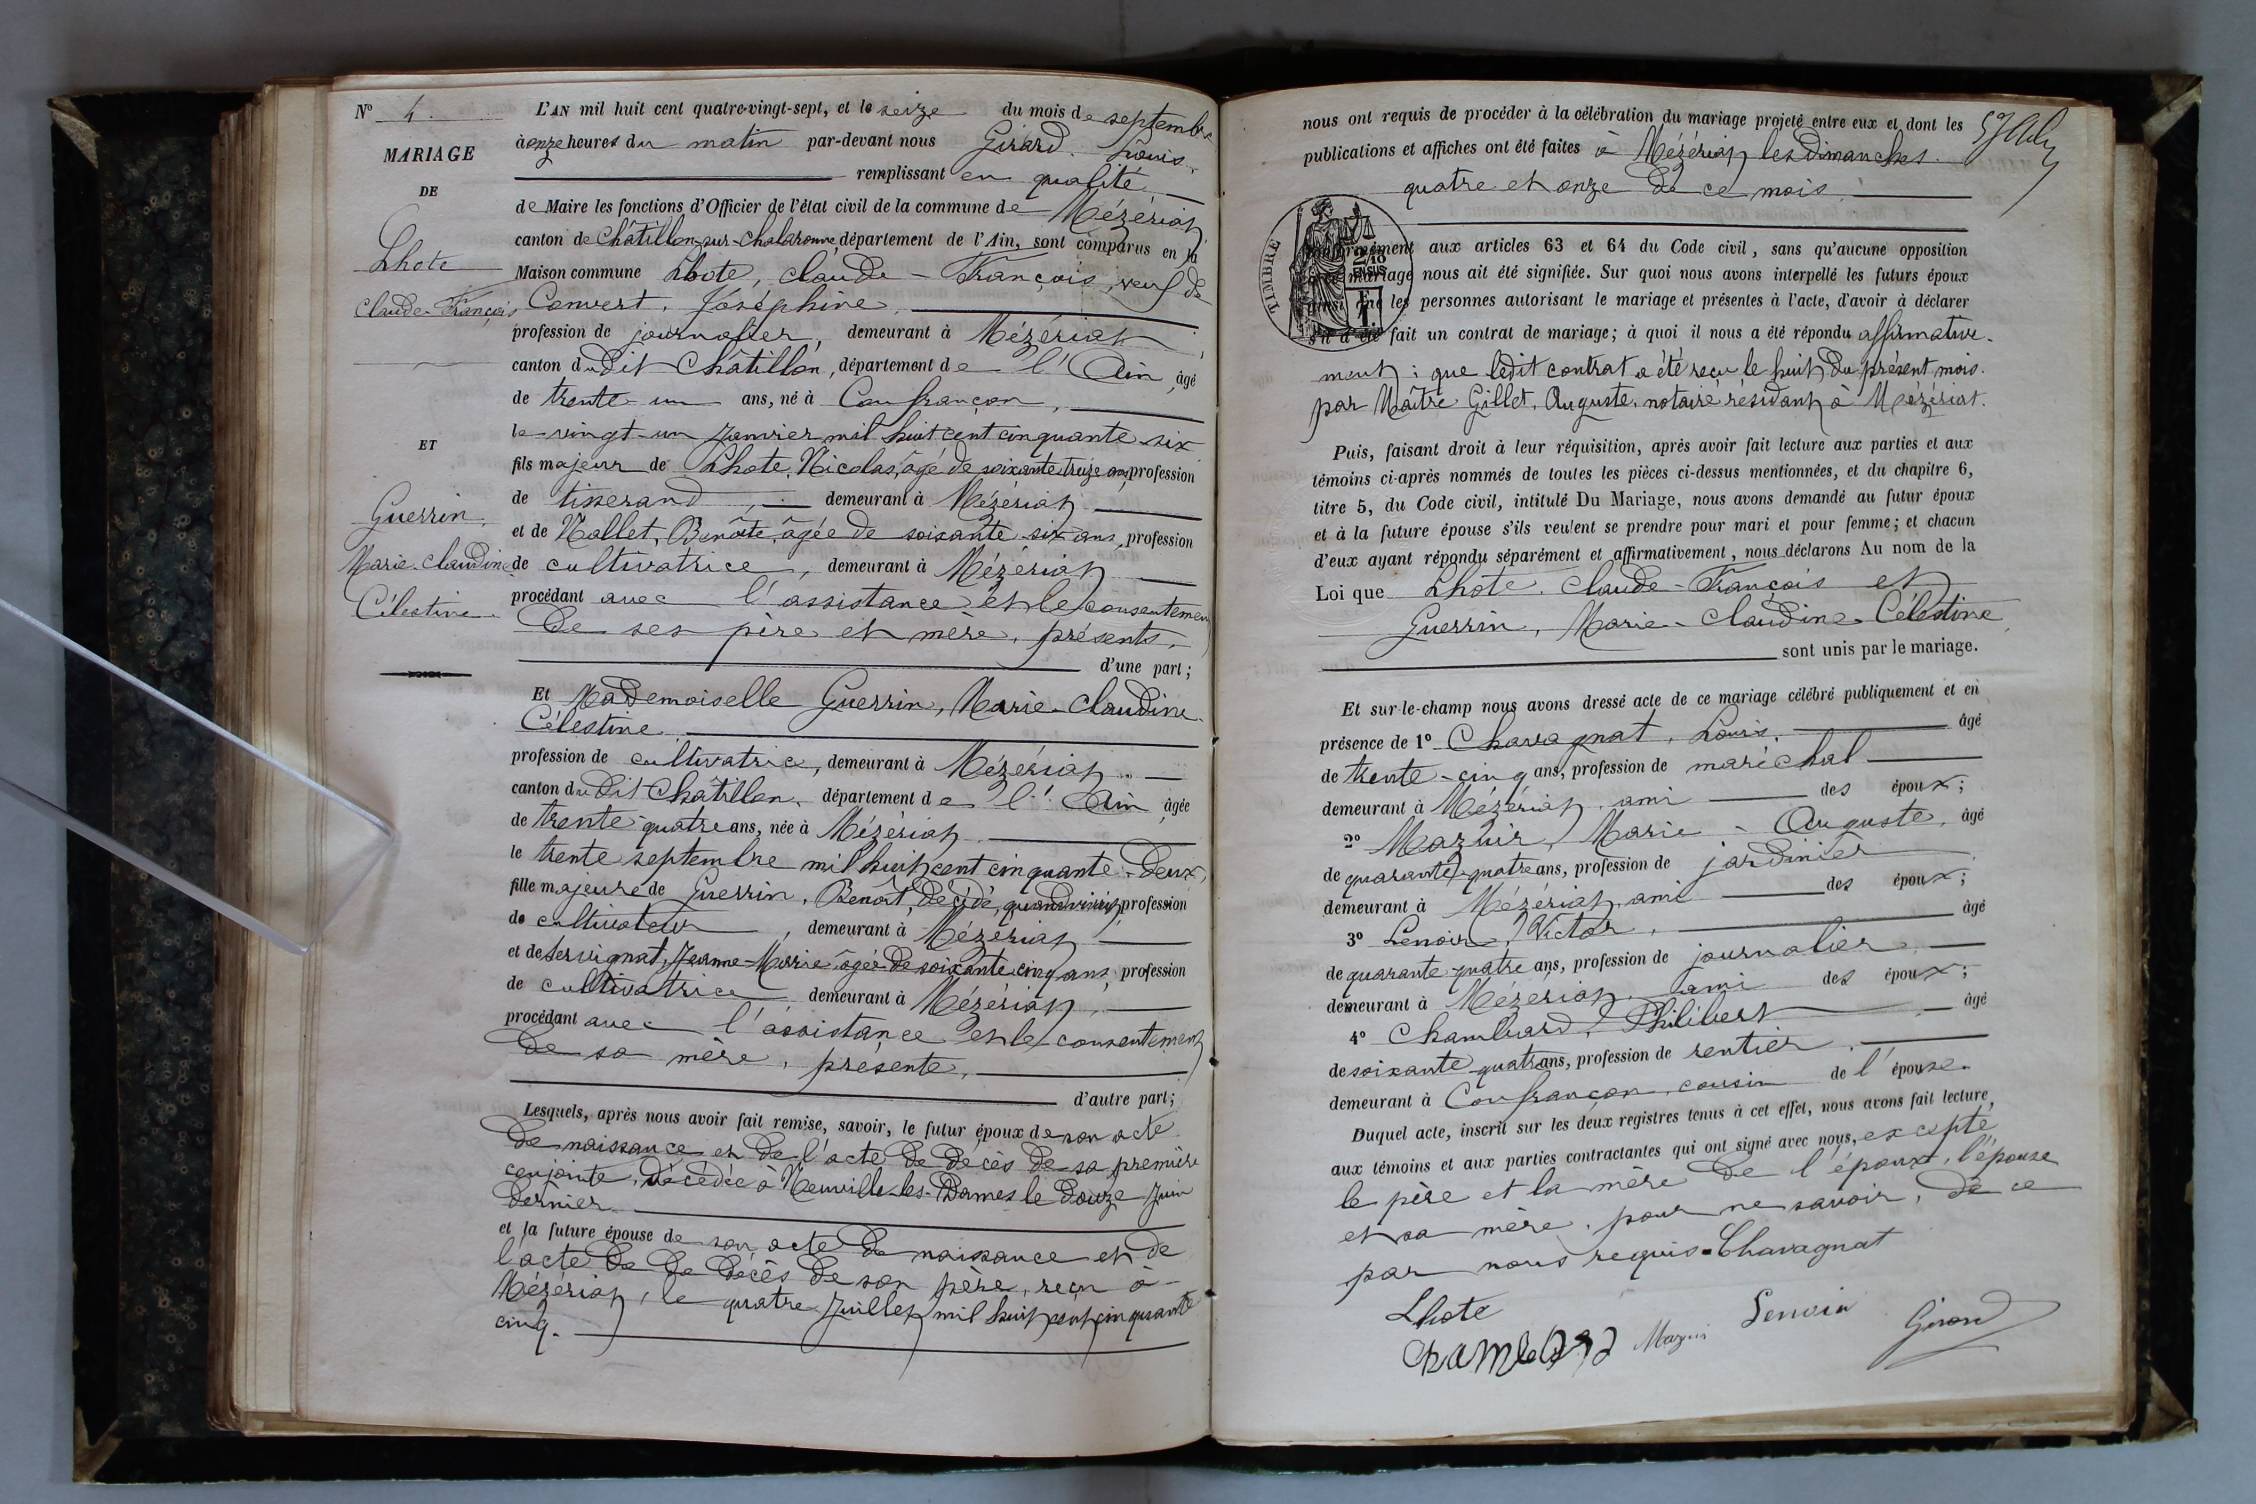 N° 4.
MARIAGE
DE
Lhote
Claude-François
ET
Guerrin,
Marie-Claudine
Célestine.
L'AN mil huit cent quatre-vingt-sept, et le seize du mois de septembre
à onze heures du matin par-devant nous Girard, Louis,
remplissant en qualité
de Maire les fonctions d'Officier de l'état civil de la commune de Mézériat,
canton de Châtillon-sur-Chalaronne, département de l'Ain, sont comparus en la
Maison commune Lhote, Claude-François, veuf de
Convert, Joséphine,
profession de journalier, demeurant à Mézériat,
canton du dit Châtillon, département de l'Ain, âgé
de trente-un ans, né à Confrançon,
le vingt-un Janvier mil huit cent cinquante-six
fils majeur de Lhote, Nicolas, âgé de soixante treize ans, profession
de tisserand, demeurant à Mézériat
et de Nallet, Benoîte, âgée de soixante-six ans, profession
de cultivatrice, demeurant à Mézériat
procédant avec l'assistance et le consentement
de ses père et mère, présents,
d'une part;
Et Mademoiselle Guerrin, Marie-Claudine
Célestine
profession de cultivatrice, demeurant à Mézériat,
canton du dit Châtillon, département de l'Ain, âgée
de trente-quatre ans, née à Mézériat,
le trente septembre mil huit cent cinquante-deux,
fille majeure de Guerrin, Benoît, décédé, quand vivait profession
de cultivateur, demeurant à Mézériat
et de Servignat, Jeanne-Marie, âgée de soixante cinq ans, profession
de cultivatrice demeurant à Mézériat,
procédant avec l'assistance et le consentement
de sa mère, présente,
d'autre part;
Lesquels, après nous avoir fait remise, savoir, le futur époux de son acte
de naissance et de l'acte de décès de sa première
conjointe, décédée à Neuville-les-Dames le douze Juin
dernier
et la future épouse de son acte de naissance et de
l'acte de de décès de son père, reçu à
Mézériat, le quatre Juillet mil huit cent cinquante
cinq.
nous ont requis de procéder à la célébration du mariage projeté entre eux et dont les
publications et affiches ont été faites à Mézériat les dimanches
quatre et onze de ce mois,
TIMBRE
2/10
EN SUS
conformément aux articles 63 et 64 du Code civil, sans qu'aucune opposition
mariage nous ait été signifiée. Sur quoi nous avons interpellé les futurs époux
ainsi que les personnes autorisant le mariage et présentes à l'acte, d'avoir à déclarer
s'il a été fait un contrat de mariage; à quoi il nous a été répondu affirmative-
ment: que ledit contrat a été reçu le huit du présent mois.
par Maître Gillet, Auguste, notaire résidant à Mézériat.
Puis, faisant droit à leur réquisition, après avoir fait lecture aux parties et aux
témoins ci-après nommés de toutes les pièces ci-dessus mentionnées, et du chapitre 6,
titre 5, du Code civil, intitulé Du Mariage, nous avons demandé au futur époux
et à la future épouse s'ils veulent se prendre pour mari et pour femme; et chacun
d'eux ayant répondu séparément et affirmativement, nous déclarons Au nom de la
Loi que Lhote, Claude-François et
Guerrin, Marie-Claudine-Célestine
sont unis par le mariage.
Et sur-le-champ nous avons dressé acte de ce mariage célébré publiquement et en
présence de 1° Chavagnat, Louis, âgé
de trente-cinq ans, profession de maréchal
demeurant à Mézériat, ami des époux;
2° Mazuir, Marie-Auguste, âgé
de quarante-quatre ans, profession de jardinier
demeurant à Mézériat, ami des époux;
3° Lenoir, Victor, âgé
de quarante-quatre ans, profession de journalier
demeurant à Mézériat, ami des époux;
4° Chambard, Philibert âgé
de soixante-quatre ans, profession de rentier,
demeurant à Confrançon, cousin de l'épouse.
Duquel acte, inscrit sur les deux registres tenus à cet effet, nous avons fait lecture,
aux témoins et aux parties contractantes qui ont signé avec nous, excepté
le père et la mère de l'époux, l'épouse
et sa mère, pour ne savoir, de ce
par nous requis. Chavagnat
Lhote Lenoir Girard
Chambard Mazuir